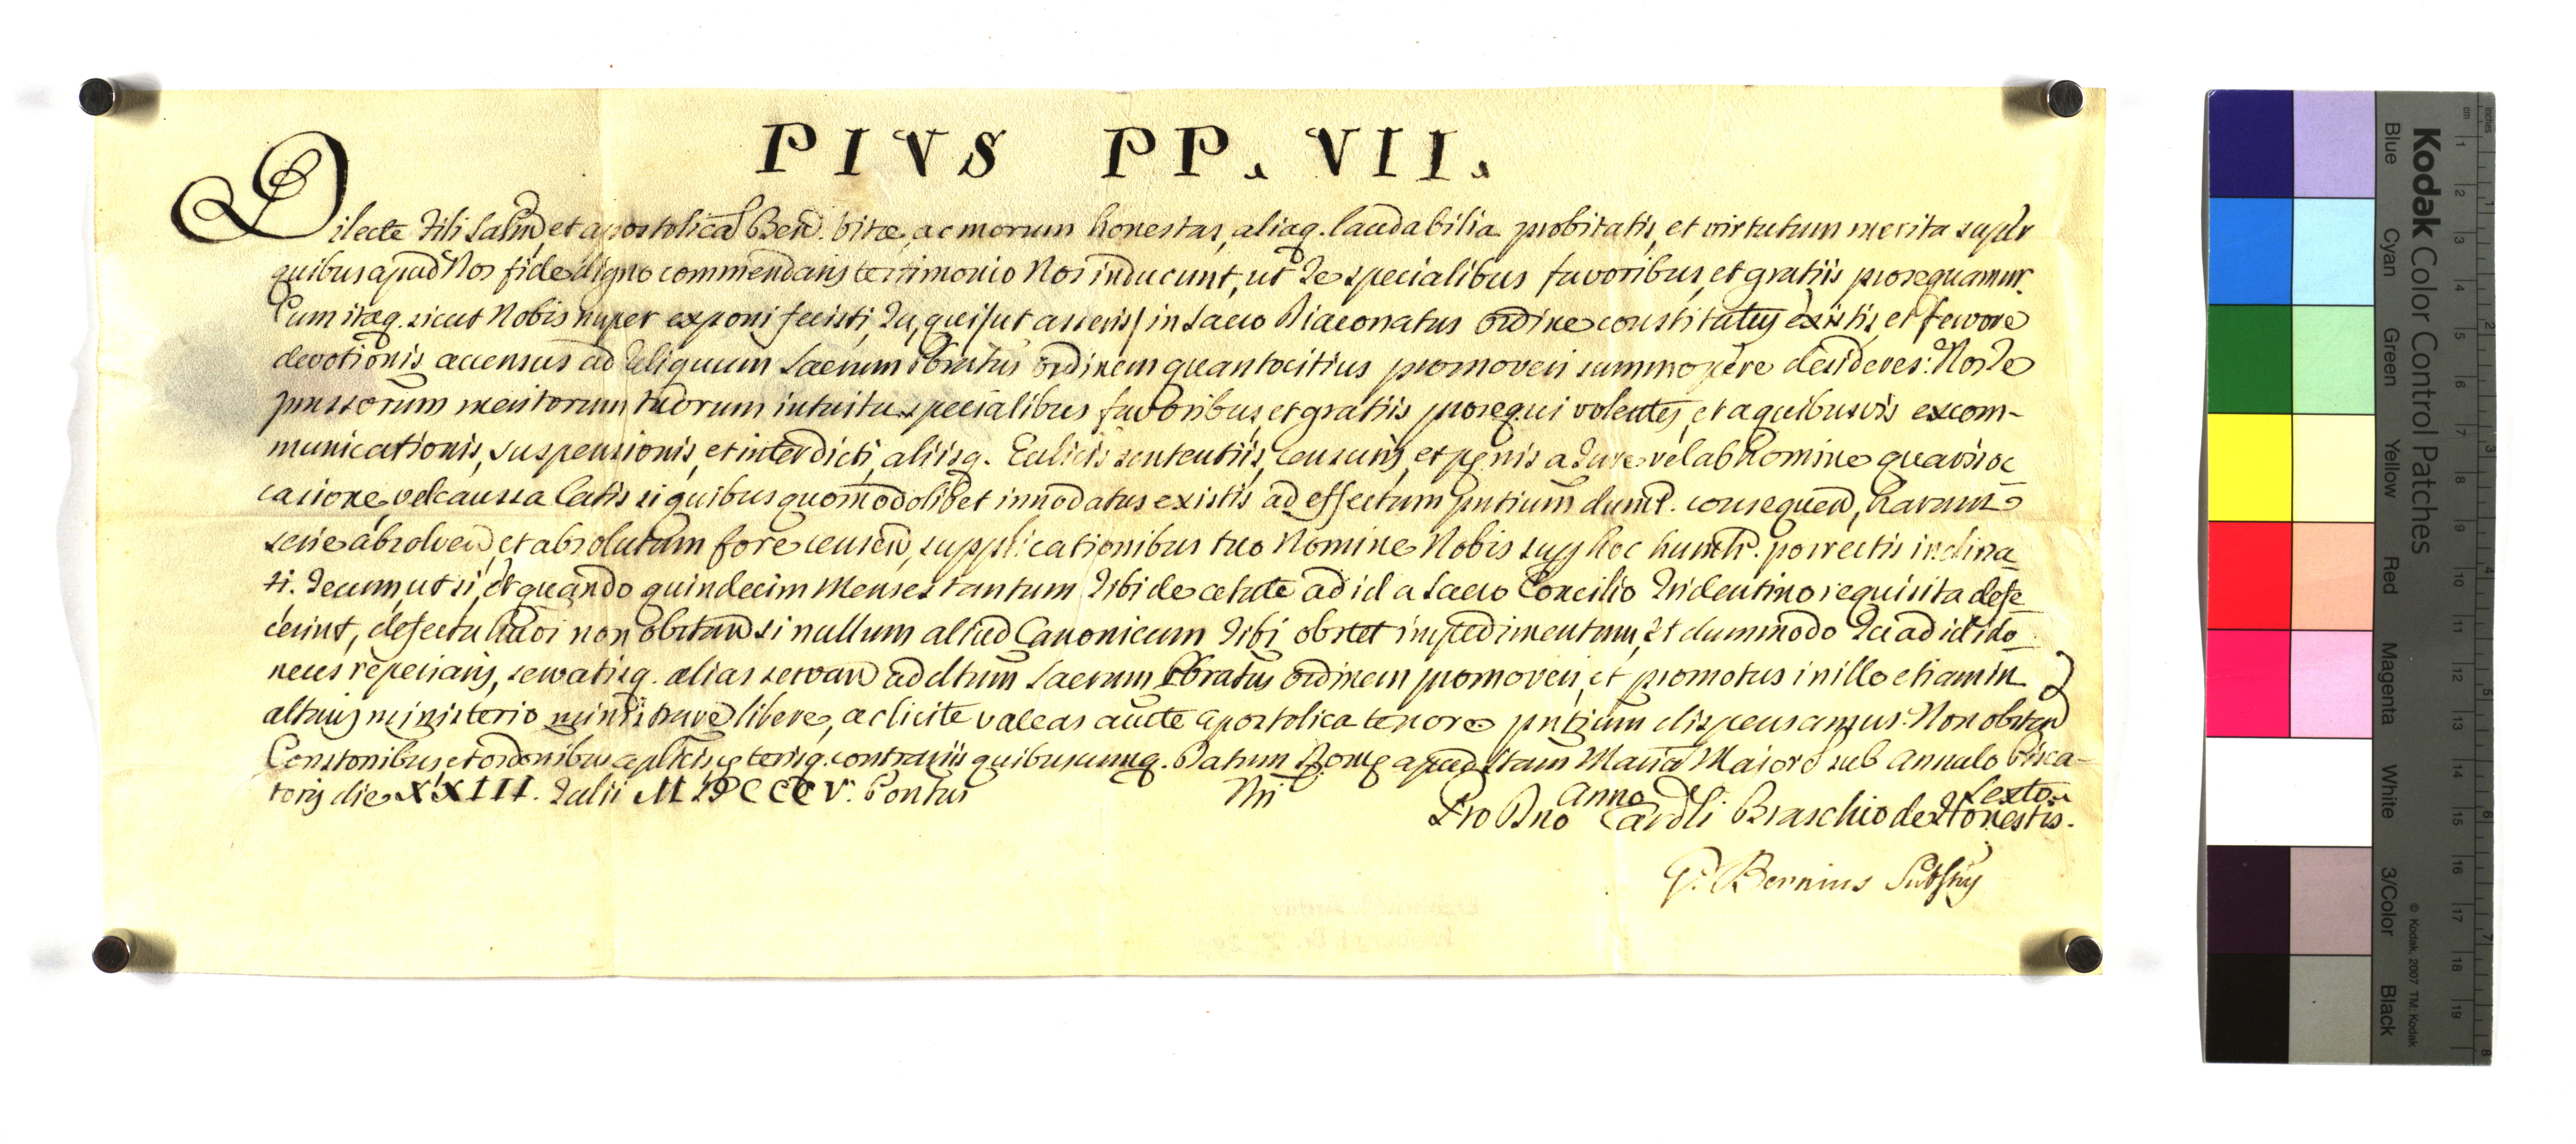 PIVS PP. VII.
Dilecte Fili Salm̃, et apostolicã Beñ. Vitæ, ac morum honestas, aliaq. laudabilia probitatis, et virtutum merita super
quibus apud Nos fide digno commendaris testimonio Nos inducunt, ut Te specialibus favoribus, et gratiis prosequamur.
Cum itaq. sicut Nobis nuper exponi fecisti, Tu, qui /ut asseris/ in Sacro Diaconatus ordine constitutus existis, et fervore
devotionis accensus ad reliquum Sacrum Pbratus ordinem quantocitius promoveri summopere desideres: Nos Te
pmissorum meritorum tuorum intuitu specialibus favoribus, et gratiis prosequi volentes, et a quibusvis excom-
municationis, suspensionis, et interdicti, aliisq. Ecclicis sententiis, censuris, et pęnis a Jure vel ab homine quavis oc
casione, vel caussa latis si quibus quomodolibet innodatus existis ad effectum pntium dumt. consequen̄, harum
serie absolven̄, et absolutum fore censen̄, supplicationibus tuo Nomine Nobis sup hoc humilr. porrectis inclina
ti. Tecum, ut si, et quando quindecim Menses tantum Tibi de ætate ad id a Sacro Concilio Tridentino requisita defe
cerint, defectu hmõi non obstan̄ si nullum aliud Canonicum Tibi obstet impedimentum, et dummodo Tu ad id ido
neus reperiaris, servatisq. alias servan̄ ad dtum Sacrum Pbratus ordinem promoveri, et promotus in illo etiam in
altaris ministerio ministrare libere, ac licite valeas aucte apostolica tenore pntium dispensamus. Non obstan̄
Constonibus, et ordonibus aplicis, cęterisq. contrariis quibuscumq. Datum Romę apud Stam Mariã Maiorẽ sub Annulo Pisca-
toris die XXIII. Julii MDCCCV. Pontus Nri Anno Sexto.
Pro Dno Cardli Braschio de Honestis.
G. Bernius Substus
Kodak Color Control Patches
Blue Cyan Green Yellow Red Magenta White 3/Color Black
© Kodak, 2007 TM: Kodak
cm 1 2 3 4 5 6 7 8 9 10 11 12 13 14 15 16 17 18 19
inches 1 2 3 4 5 6 7 8